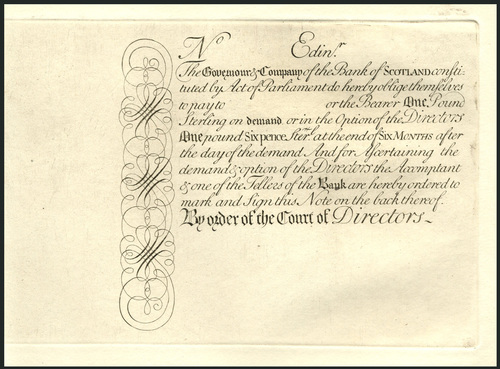 No Edinr.
The Governour & Company of the Bank of SCOTLAND consti-
tuted by Act of Parliament do herby oblige themselves
to pay to or the Bearer One Pound
Sterling on demand, or in the Option of the Directors
One pound Six pence Sterl. at the end of SIX MONTHS after
the day of the demand And for Ascertaining the
demand & option of the Directors the Accomptant
& one of the Tellers of the Bank are hereby ordered to
mark and Sign this Note on the back thereof.
By order of the Court of Directors